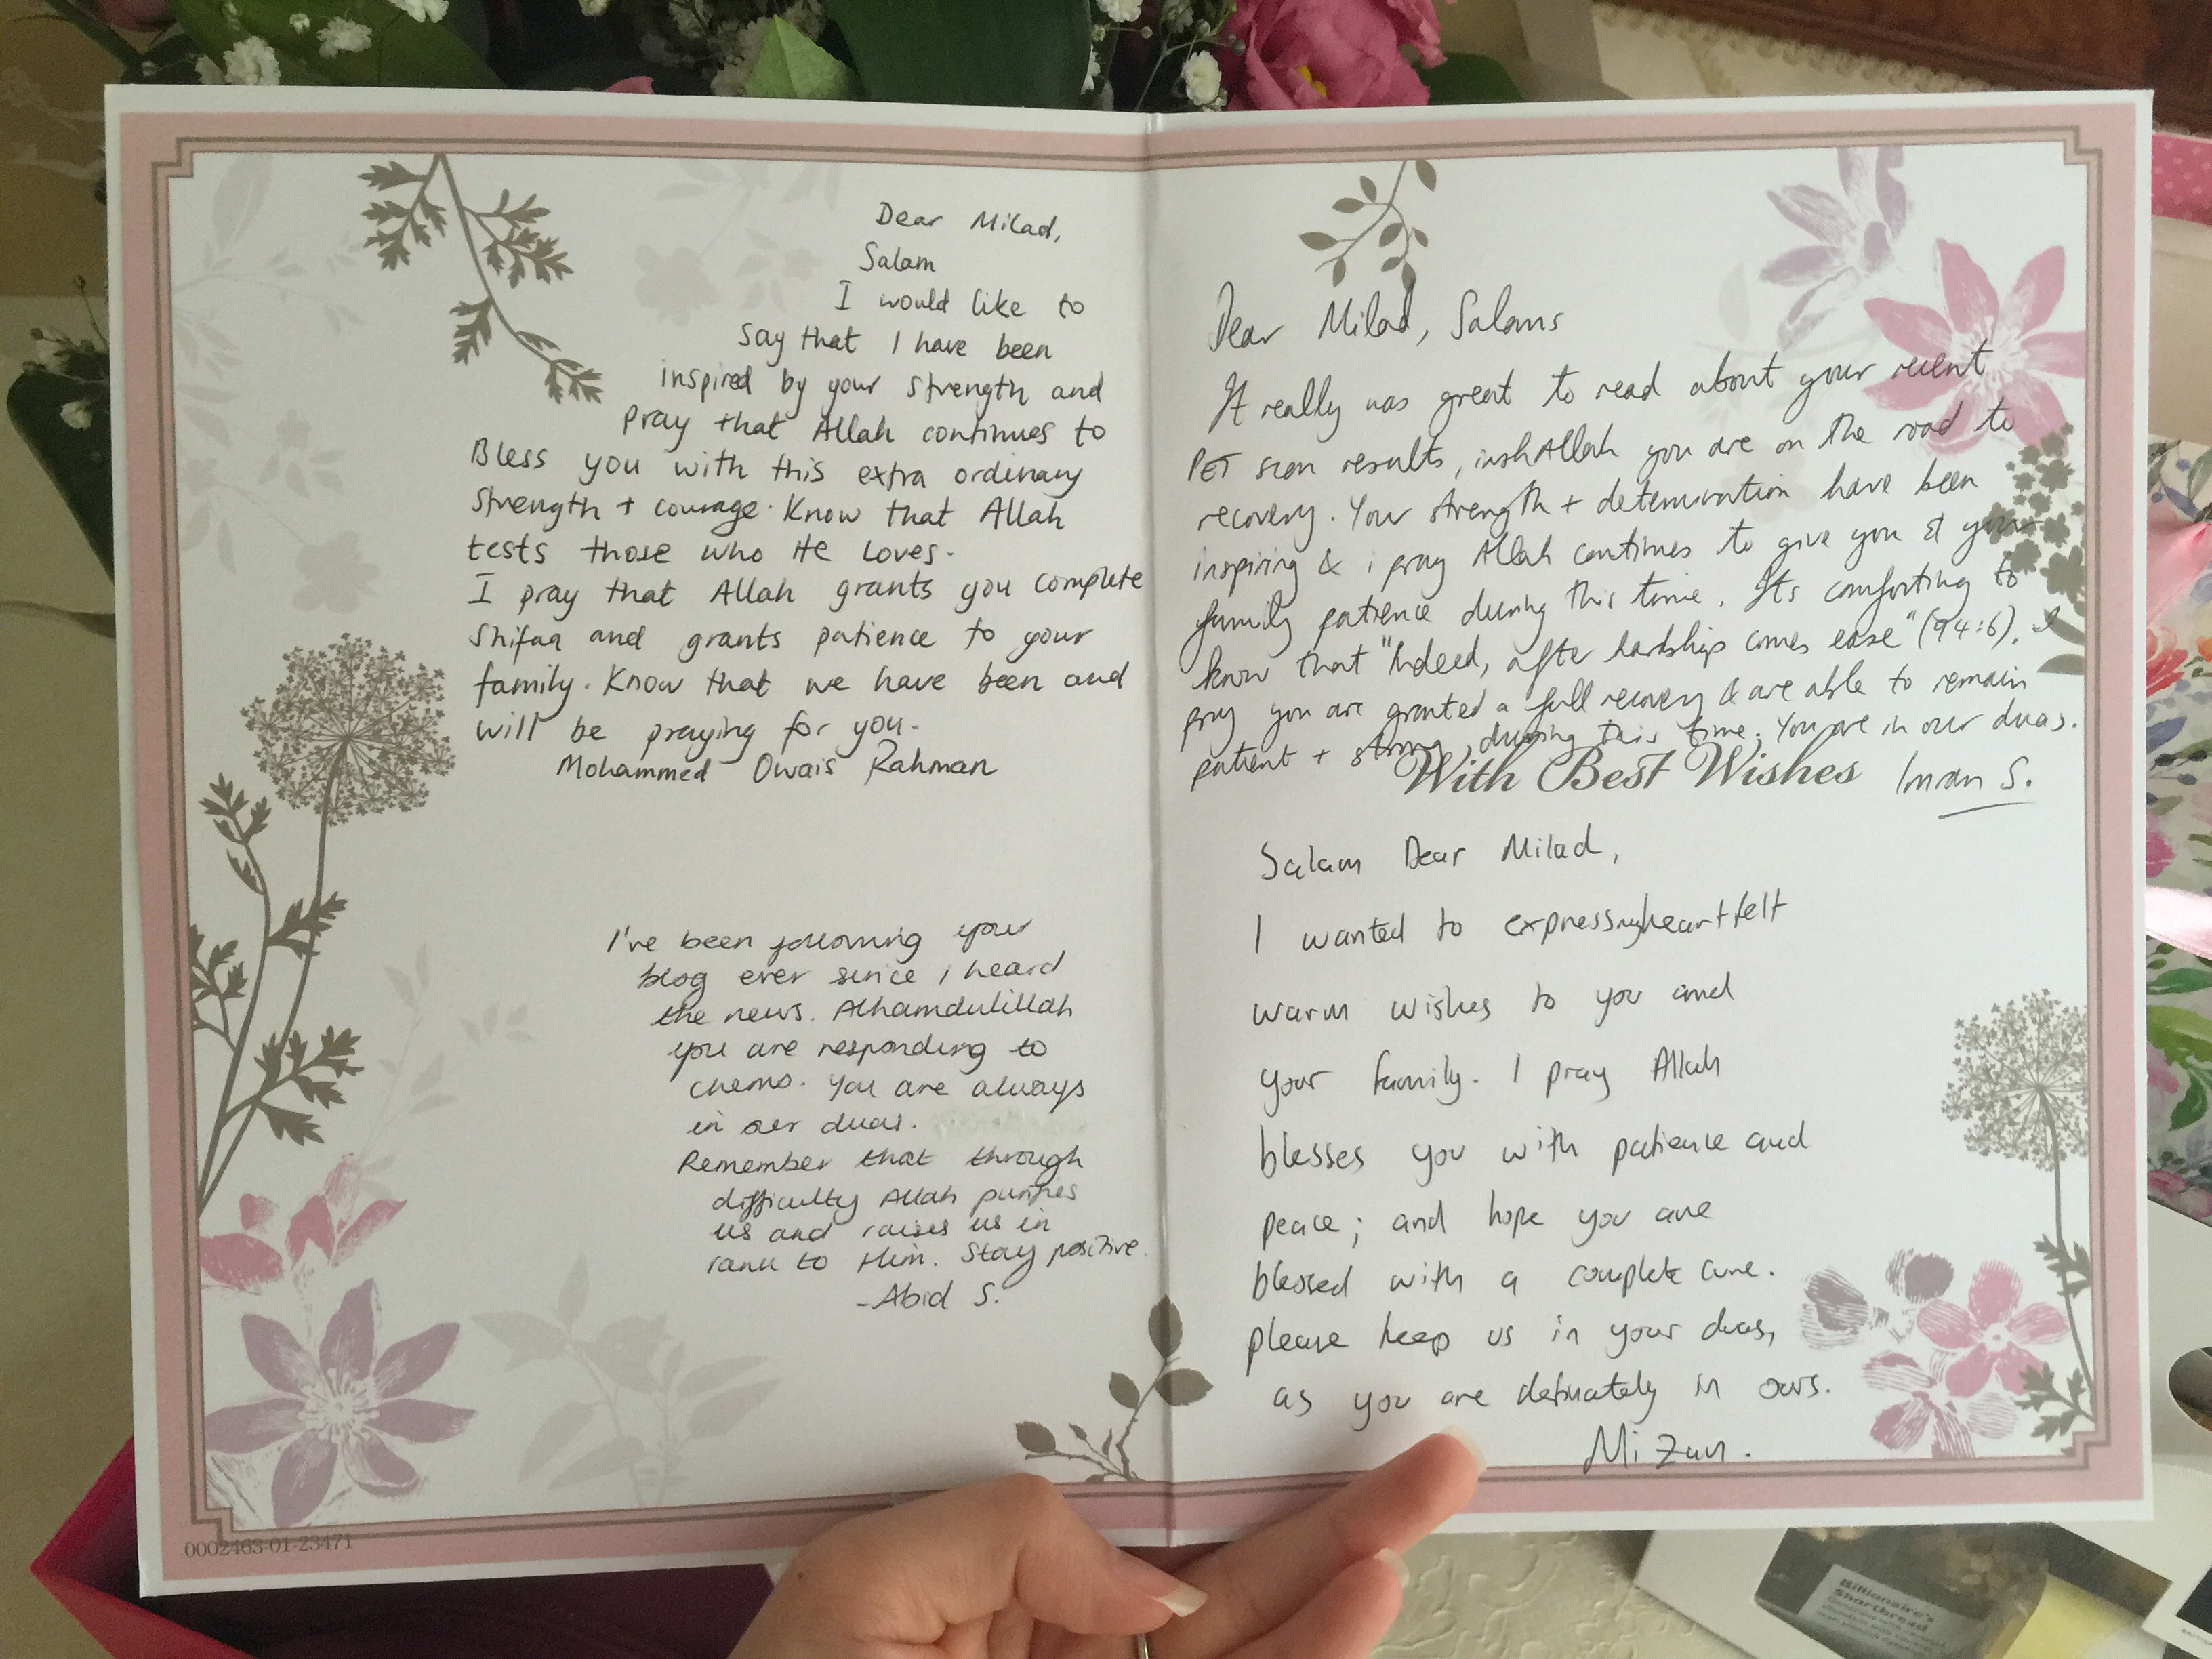 Dear Milad,
Salam
I would like to
say that I have been
inspired by your strength and
pray that Allah continues to
Bless you with this extra ordinary
strength + courage. Know that Allah
tests those who He loves.
I pray that Allah grants you complete
Shifaa and grants patience to your
family. Know that we have been and
will be praying for you.
Mohammed Owais Rahman
I've been following your
blog ever since i heard
the news. Alhamdulillah
you are responding to
chemo. You are always
in our duas.
Remember that through
difficulty Allah purifies
us and raises us in
rank to Him. Stay positive.
-Abid S.
0002463-01-23471
Dear Milad, Salams
It really was great to read about your recent
PET scan results, inshAllah you are on the road to
recovery. Your strength + determination have been
inspiring & i pray Allah continues to give you & your
family patience during this time. Its comforting to
know that "Indeed, after hardship comes ease" (94:6). I
pray you are granted a full recovery & are able to remain
patient + strong during this time. You are in our duas.
With Best Wishes Iman S.
Salam Dear Milad,
I wanted to express my heartfelt
warm wishes to you and
your family. I pray Allah
blesses you with patience and
peace; and hope you are
blessed with a complete cure.
please keep us in your duas,
as you are definately in ours.
Mizan.
Billionaire's
Shortbread